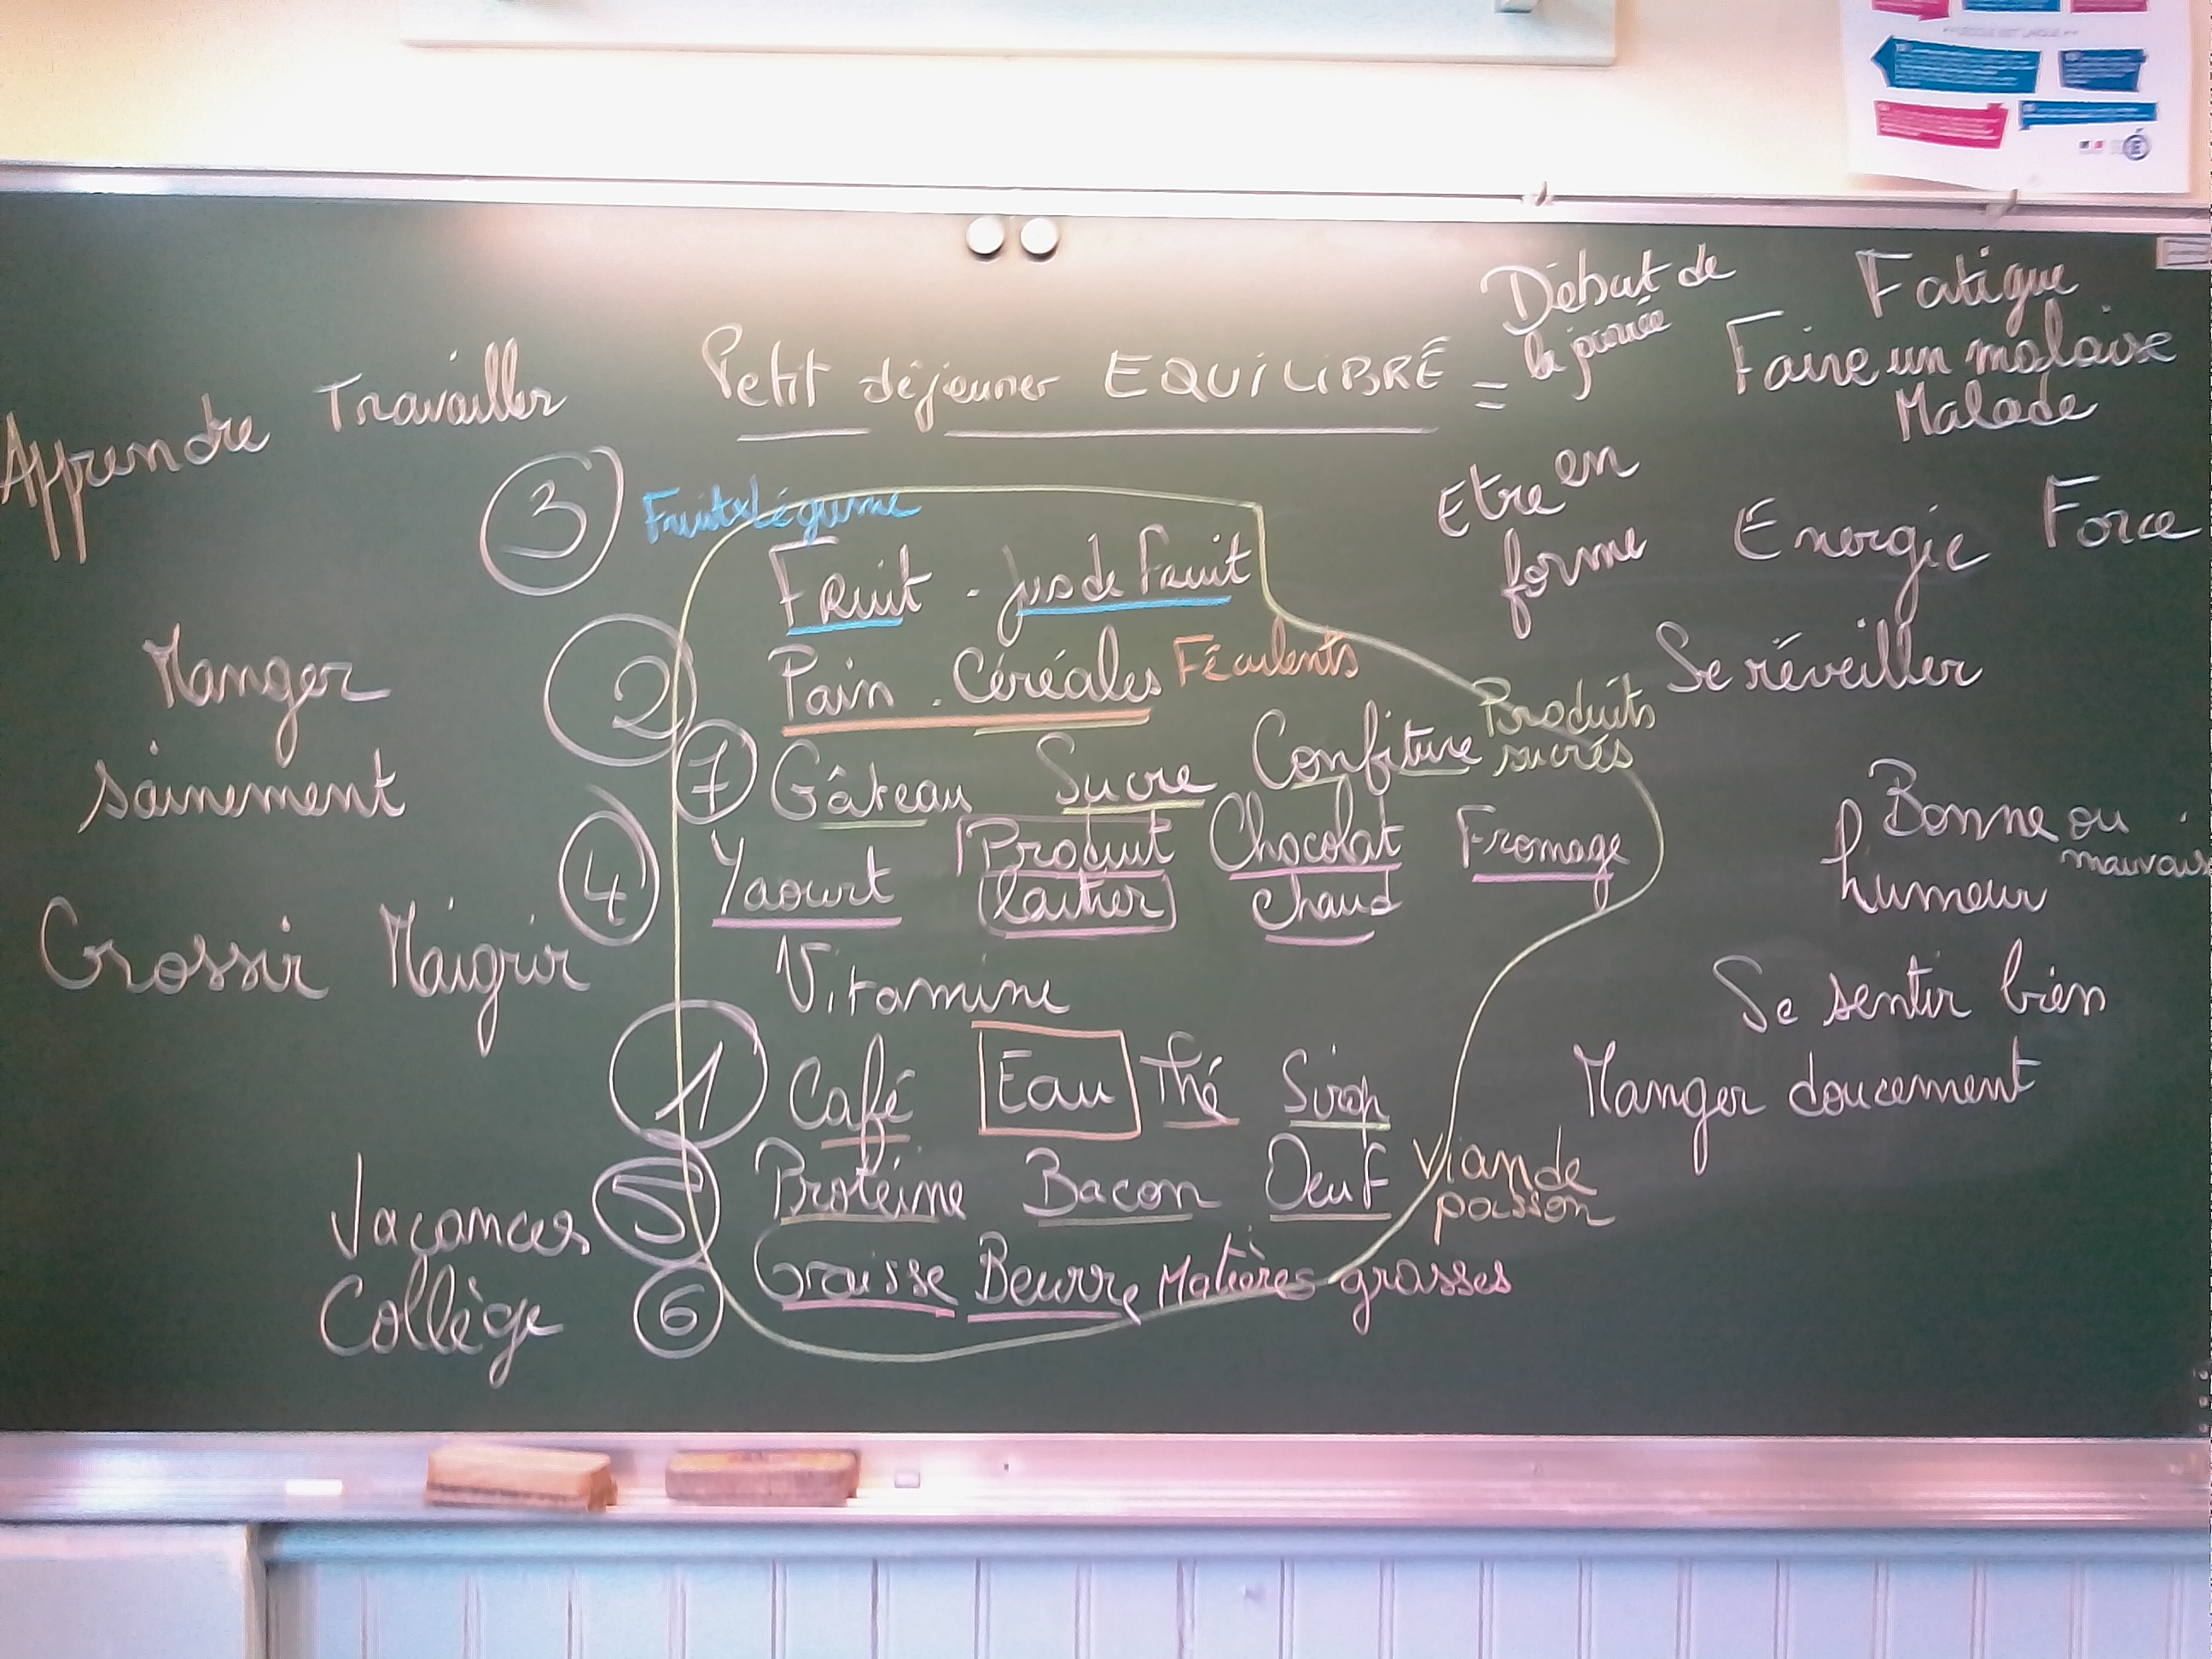 Début de
la journée
Fatigue
Faire un malaise
Malade
Petit déjeuner EQUILIBRÉ =
Apprendre Travailler
Etre en
forme
Energie Force
3 Fruits Légume
Fruit - jus de Fruit
2 Pain - Céréales Féculents
Se réveiller
Manger
sainement
7 Gâteau Sucre Confiture Produits
sucrés
4 Yaourt Produit
laitier
Chocolat
chaud
Fromage
Bonne ou
mauvais
humeur
Grossir Maigrir
Vitamine
Se sentir bien
1 Café Eau Thé Sirop
Manger doucement
5 Protéine Bacon Oeuf Viande
poisson
Vacances
Collège
6 Graisse Beurre Matières grasses